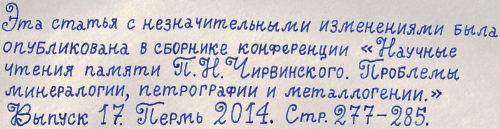 Эта статья с незначительными изменениями была
опубликована в сборнике конференции «Научные
чтения памяти П.Н.Чирвинского. Проблемы
минералогии, петрографии и металлогении.»
Выпуск 17. Пермь 2014. Стр. 277-285.